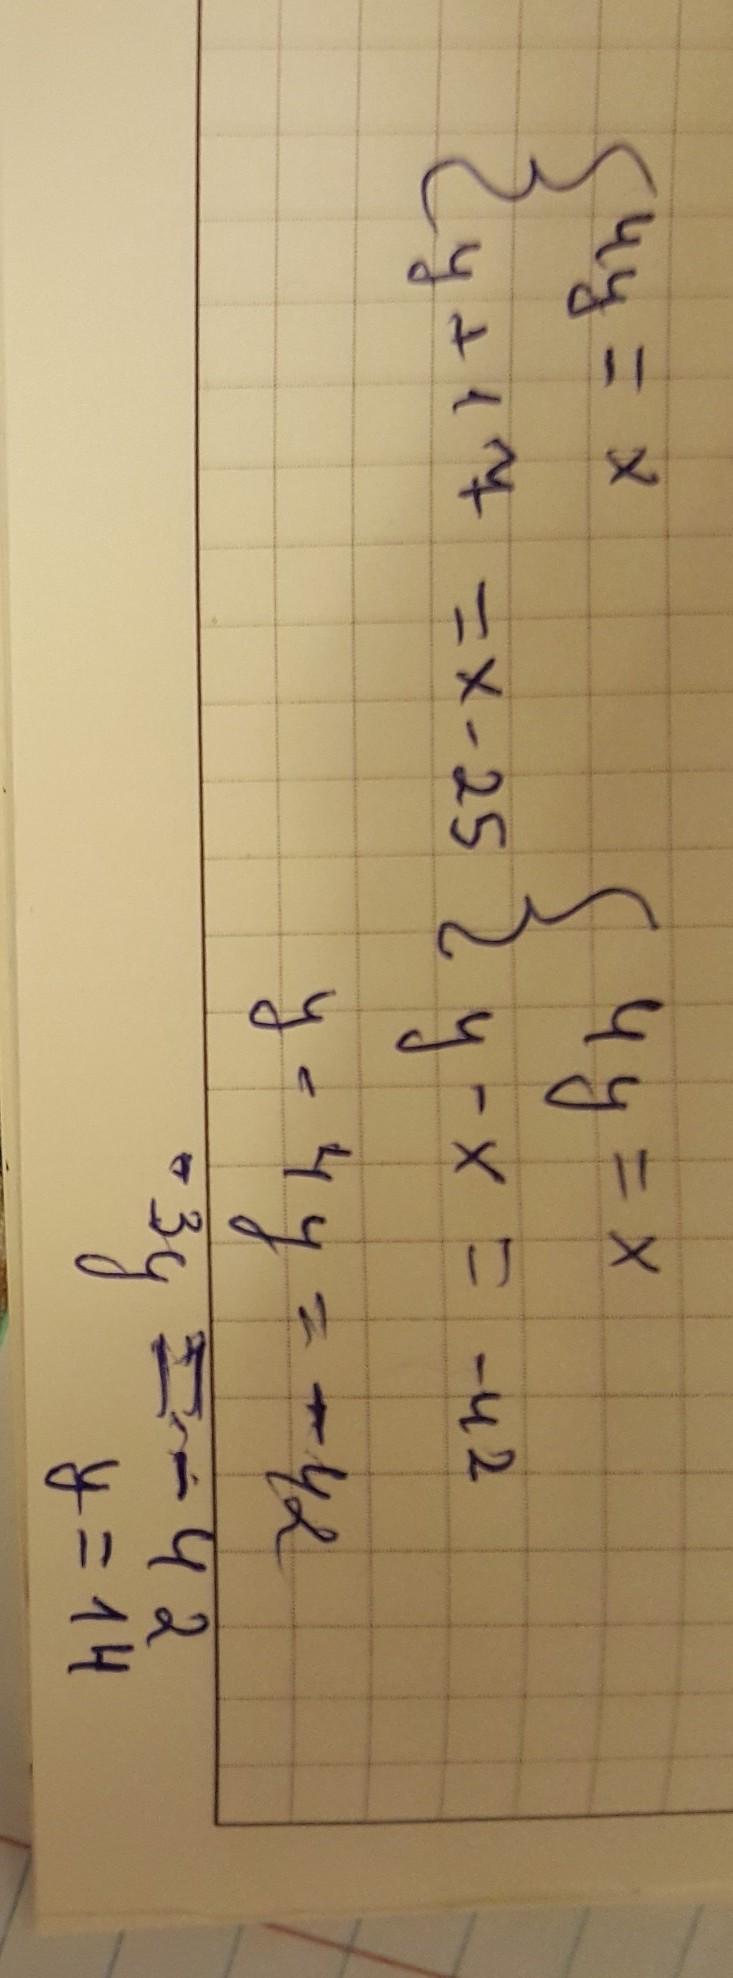 4y = x
y + 17 = x - 25
4y = x
y - x = -42
y - 4y = -42
-3y = -42
y = 14